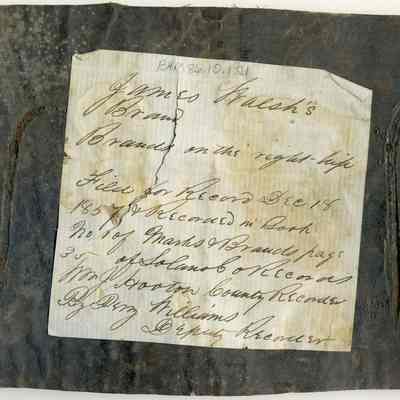 James Walsh's
Brand
Brands on the right hip
Filed for Record Dec 18
1857 & Recorded in Book
No 1 of Marks & Brands page
35 of Solano Co Records
Wm J Hooton County Recorder
By Williams
Deputy Recorder